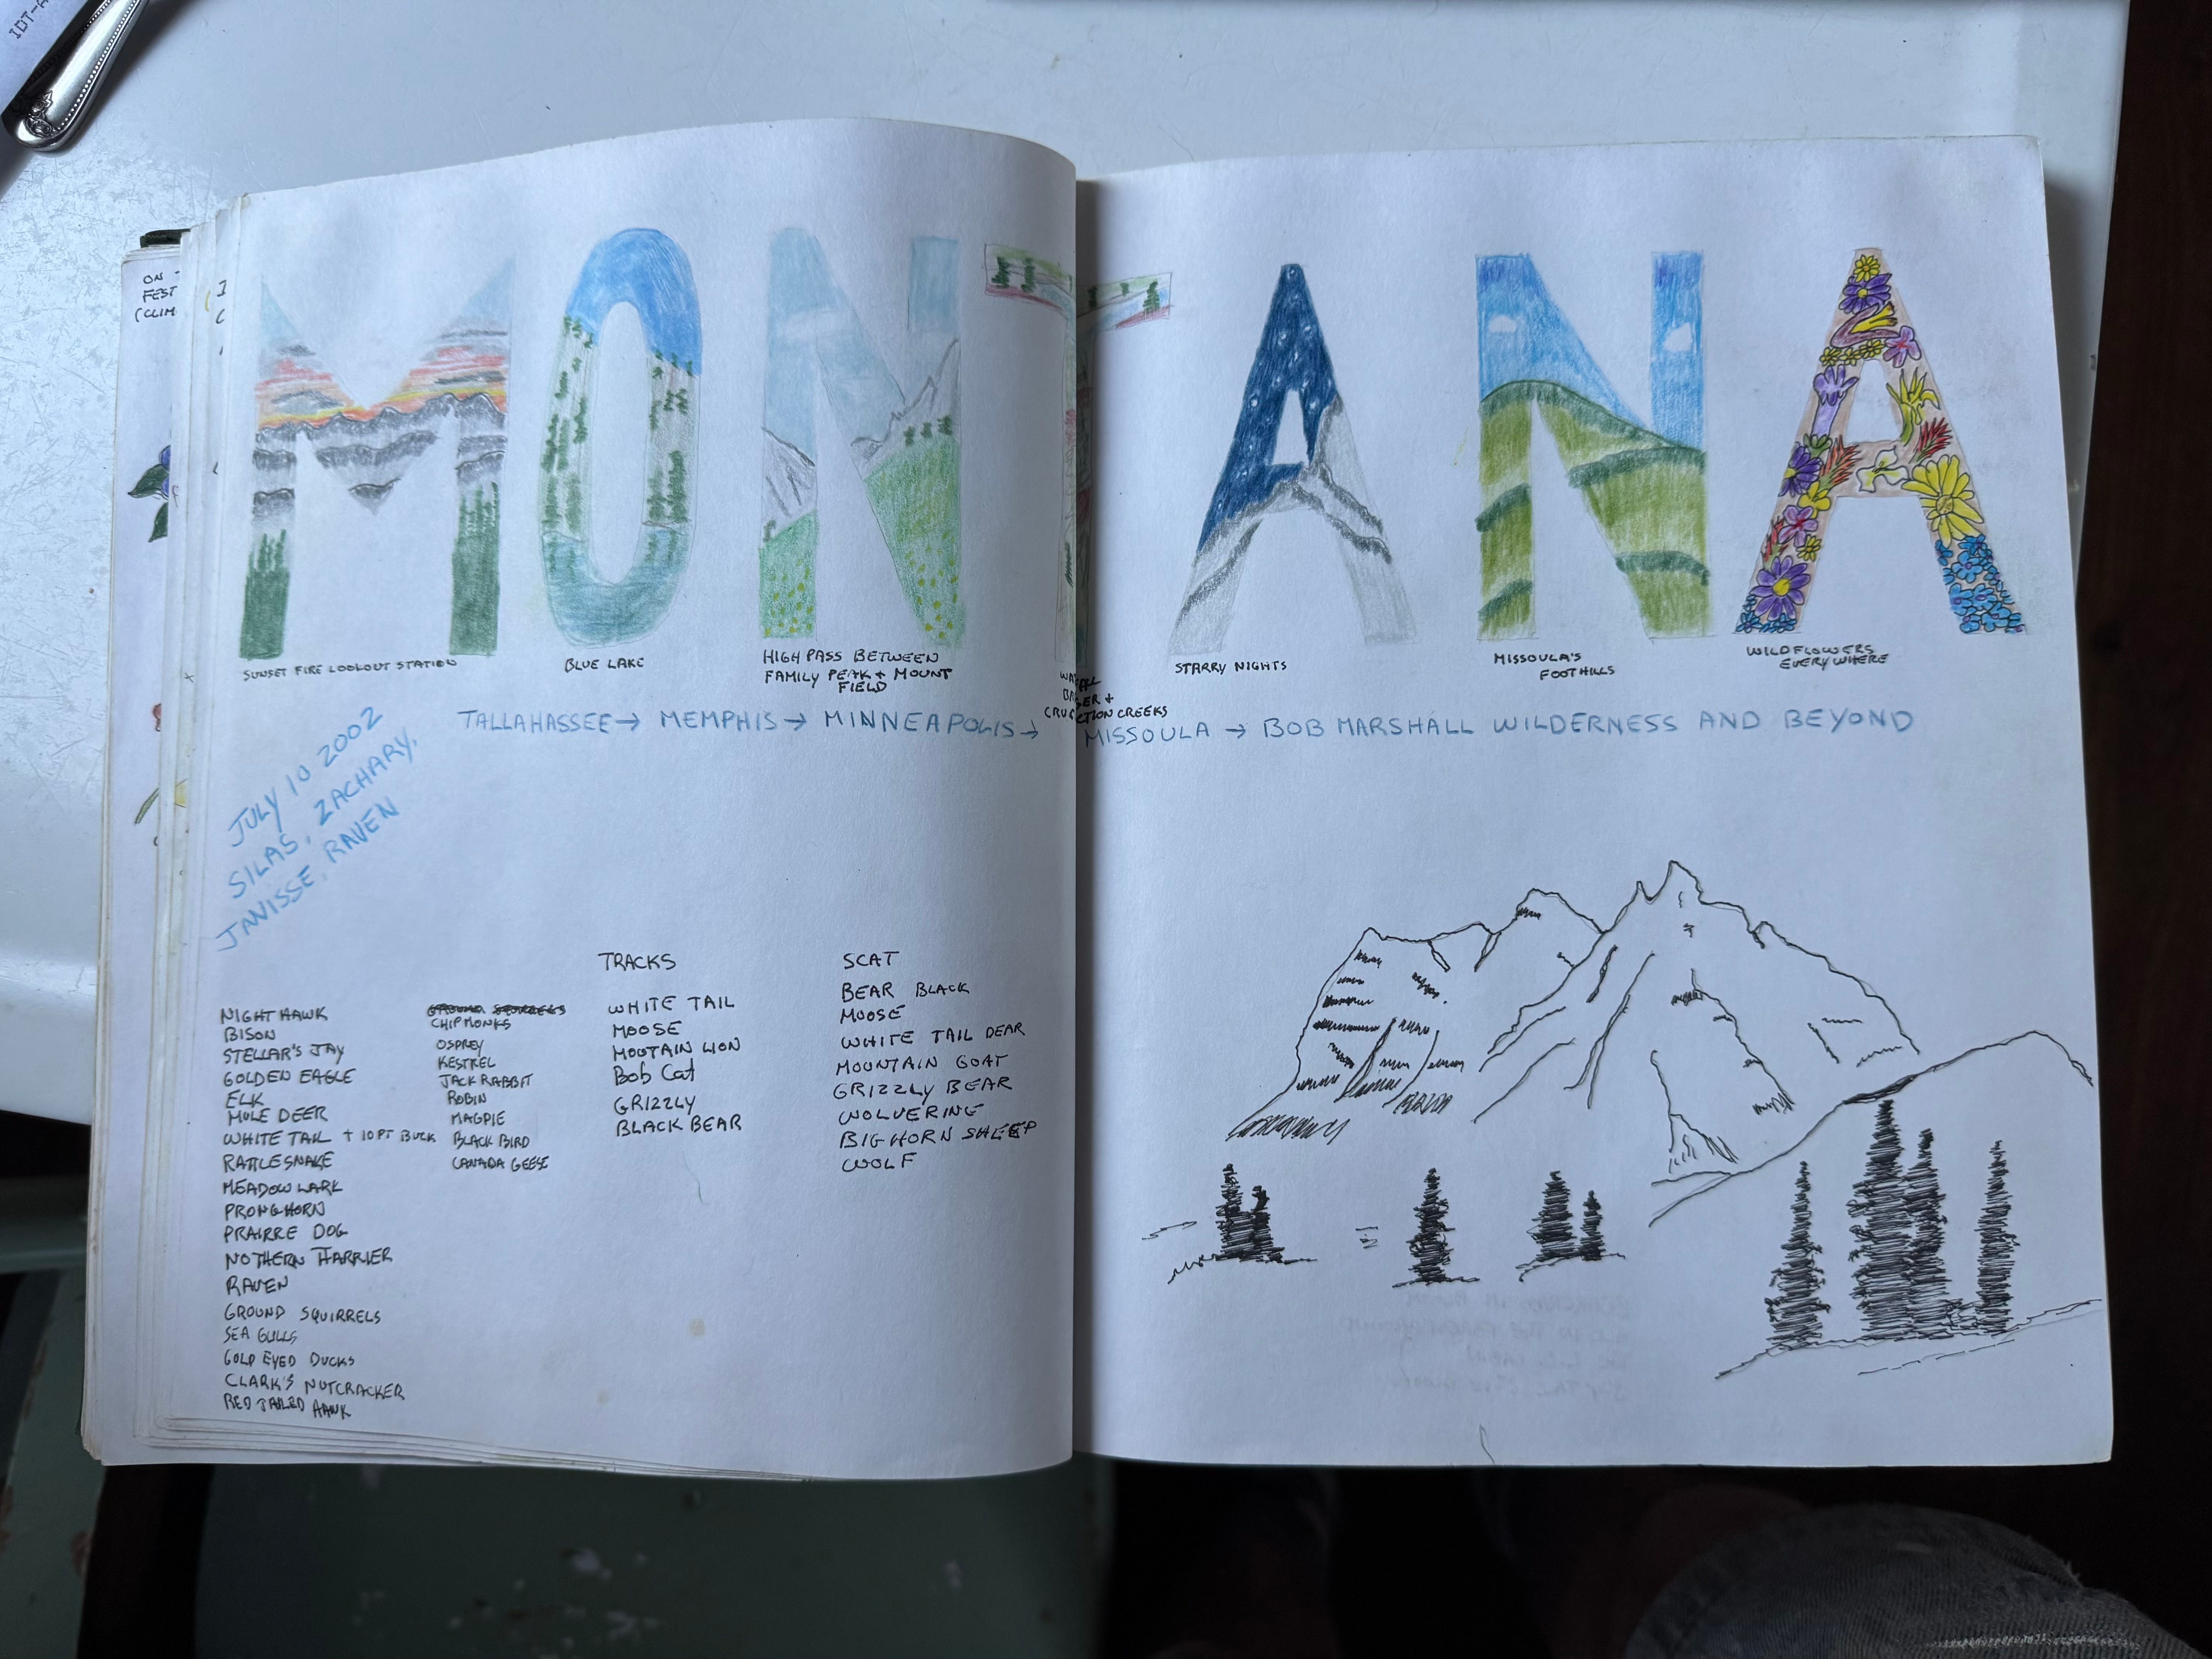 IDT-A
ON
FEST
(CLIM
MONTANA
SUNSET FIRE LOOKOUT STATION
BLUE LAKE
HIGH PASS BETWEEN
FAMILY PEAK + MOUNT
FIELD
CREEKS
STARRY NIGHTS
MISSOULA'S
FOOTHILLS
WILDFLOWERS
EVERYWHERE
TALLAHASSEE → MEMPHIS → MINNEAPOLIS → MISSOULA → BOB MARSHALL WILDERNESS AND BEYOND
JULY 10 2002
SILAS, ZACHARY,
JANISSE, RAVEN
NIGHT HAWK
BISON
STELLAR'S JAY
GOLDEN EAGLE
ELK
MULE DEER
WHITE TAIL + 10 PT BUCK
RATTLESNAKE
MEADOW LARK
PRONGHORN
PRAIRRE DOG
NOTHERN HARRIER
RAVEN
GROUND SQUIRRELS
SEA GULLS
GOLD EYED DUCKS
CLARK'S NUTCRACKER
RED TAILED HAWK
CHIPMONKS
OSPREY
KESTREL
JACK RABBIT
ROBIN
MAGPIE
BLACK BIRD
CANADA GEESE
TRACKS
WHITE TAIL
MOOSE
MOOTAIN LION
Bob Cat
GRIZZLY
BLACK BEAR
SCAT
BEAR BLACK
MOOSE
WHITE TAIL DEAR
MOUNTAIN GOAT
GRIZZLY BEAR
WOLVERINE
BIGHORN SHEEP
WOLF